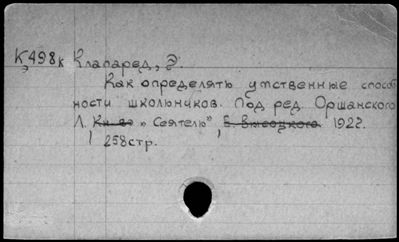 К498к Клапаред, Э.
Э
Как определять умственные способ
ности школьников. Под ред. Оршанского
Л. Кн-во „Сеятель", Е. Высоцкого. 1922.
258стр.